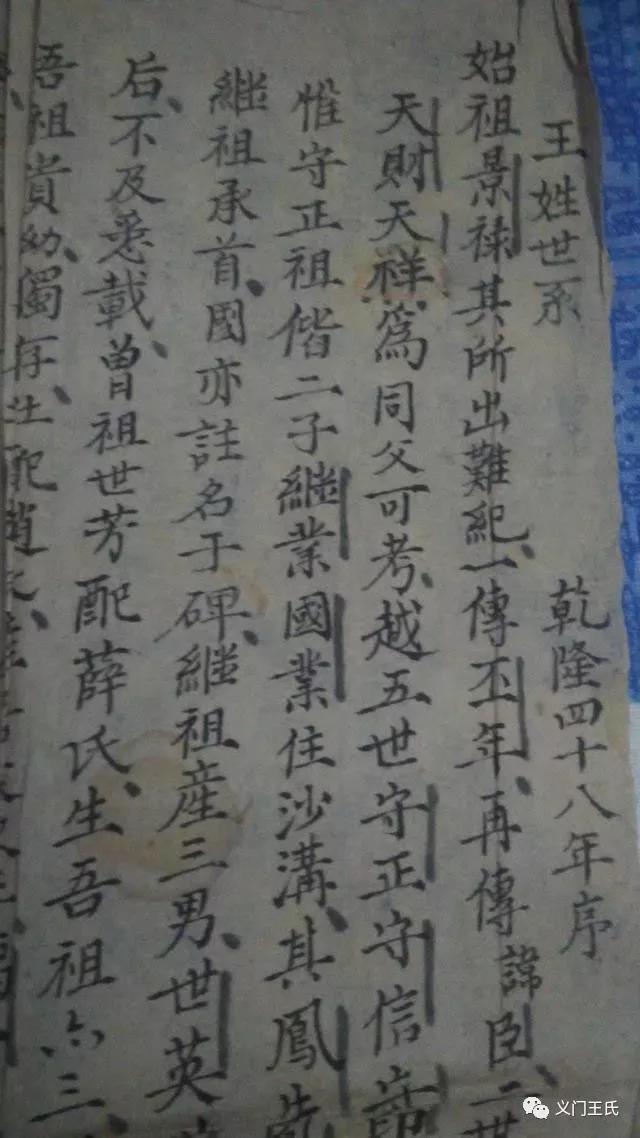 王姓世系 乾隆四十八年序
始祖景禄其所出難紀、一傳丕年、再傳諱臣、二世
天財天祥、為同父可考、越五世守正守信
惟守正祖偕二子繼業國業住沙溝、其鳳
繼祖承首、國亦註名于碑、繼祖産三男、世英
后、不及悉載、曾祖世芳配薛氏、生吾祖六三、
吾祖貴幼、獨存、生配趙氏、
义门王氏